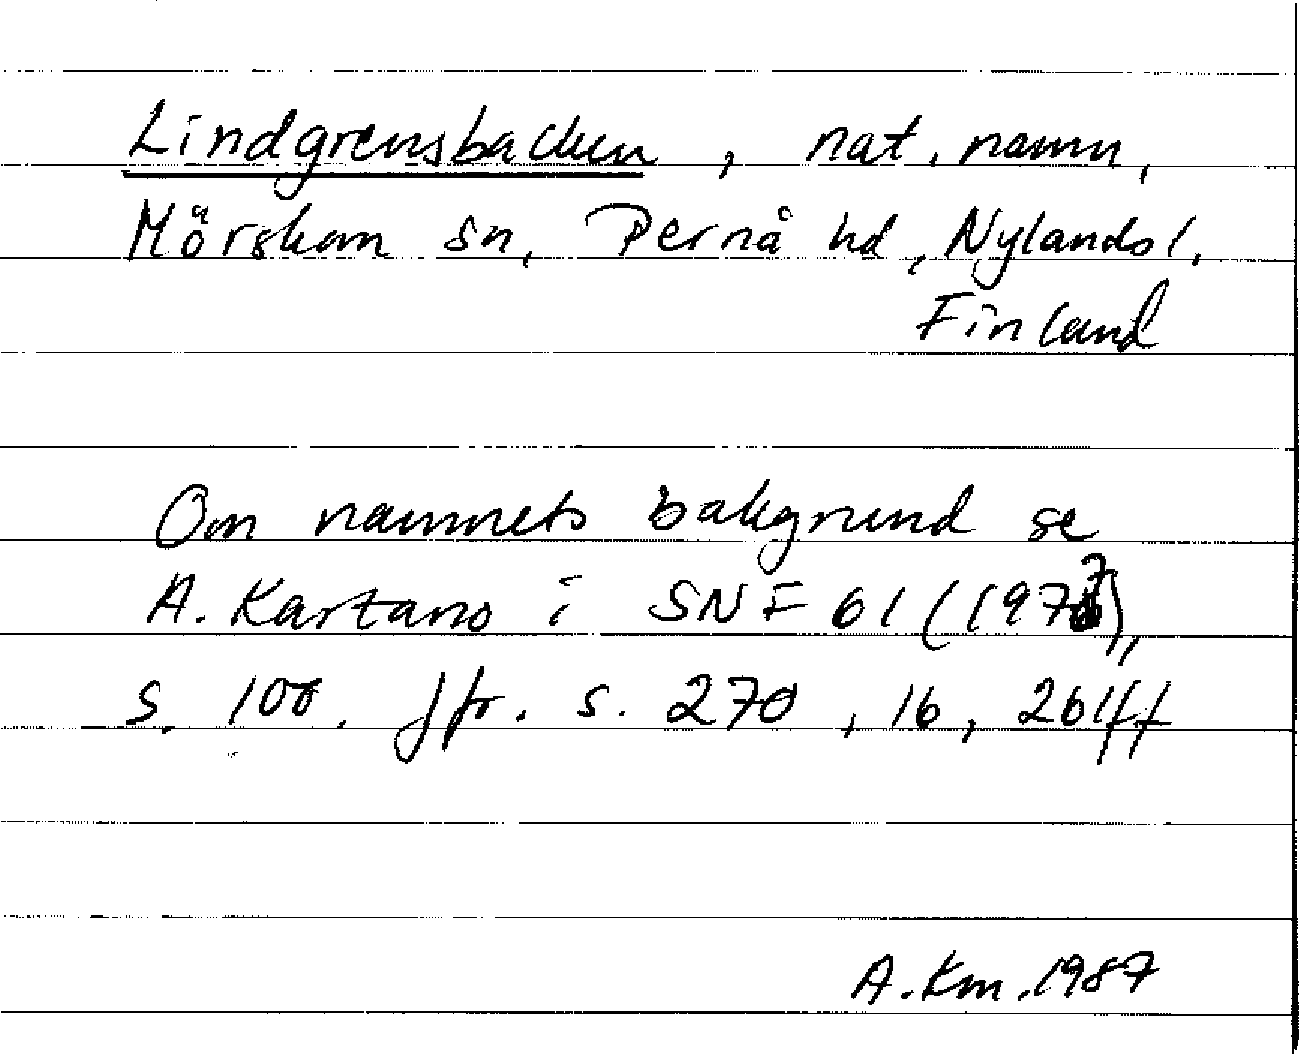 Lindgrensbacken, nat. namn,
Mörskom sn, Pernå hd, Nylands l.
Finland
Om namnets bakgrund se
A. Kartano i SNF 61 (1973),
s. 100. Jfr. s. 270, 16, 261ff
A.Km.1987